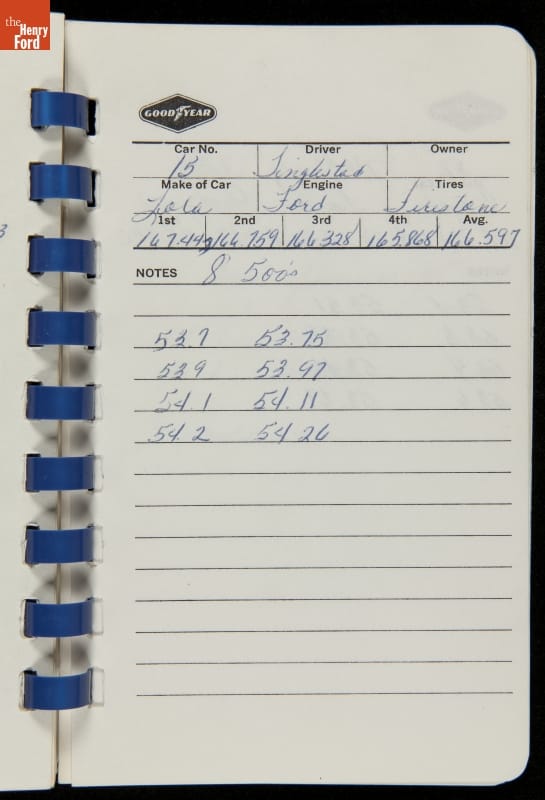 the
Henry
Ford
GOODYEAR
Car No. Driver Owner
15 Tinglestad
Make of Car Engine Tires
Lola Ford Firestone
1st 2nd 3rd 4th Avg.
167.442 166.759 166.328 165.868 166.597
NOTES 8 500's
53.7 53.75
539 53.97
54.1 54.11
54.2 54 26
3